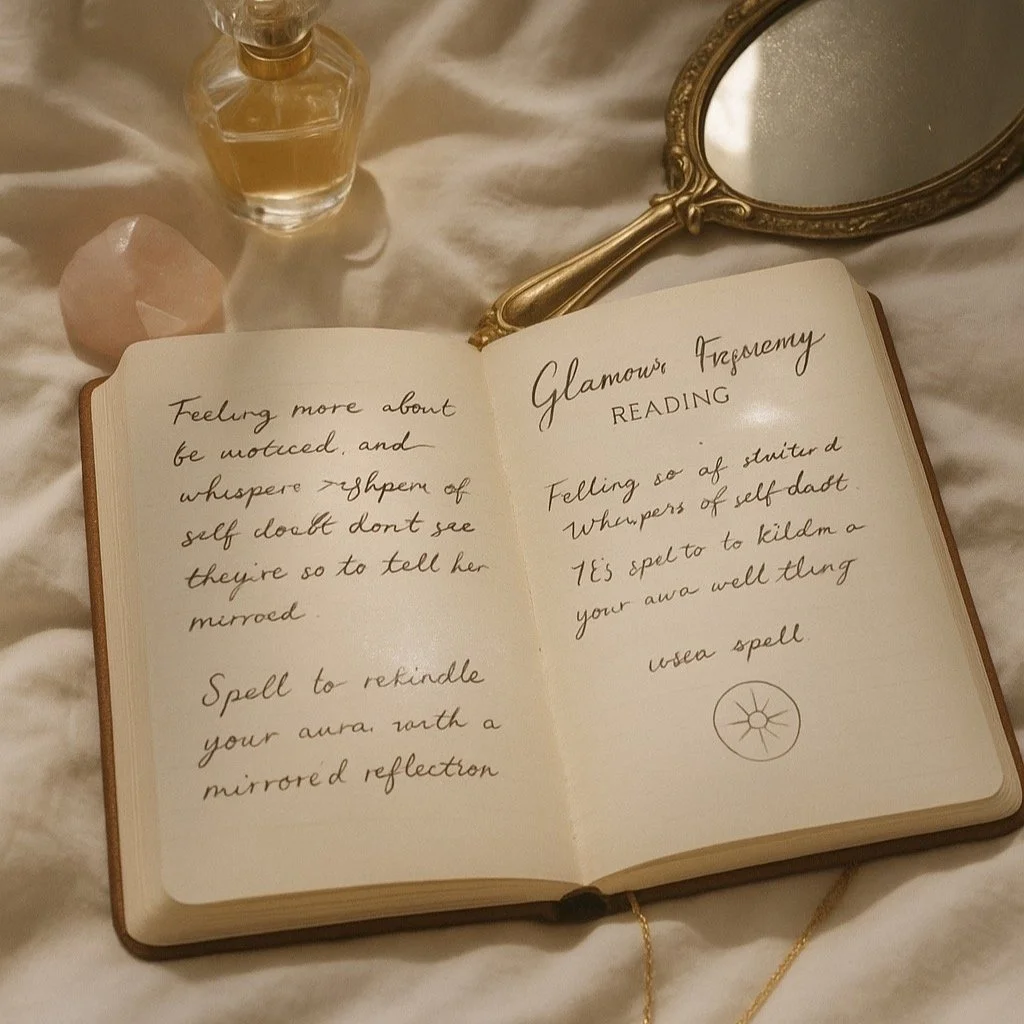 Feelurg more about
be woticed, and
whispere of
self doubt dont see
they're so to tell her
mirroed
Spell to rekindle
your aura. with a
mirrored reflection
Glamous
READING
Felling so af stuiterd
Whispers of self-daot
spel to to kildm a
your awa well tlung
usea spell